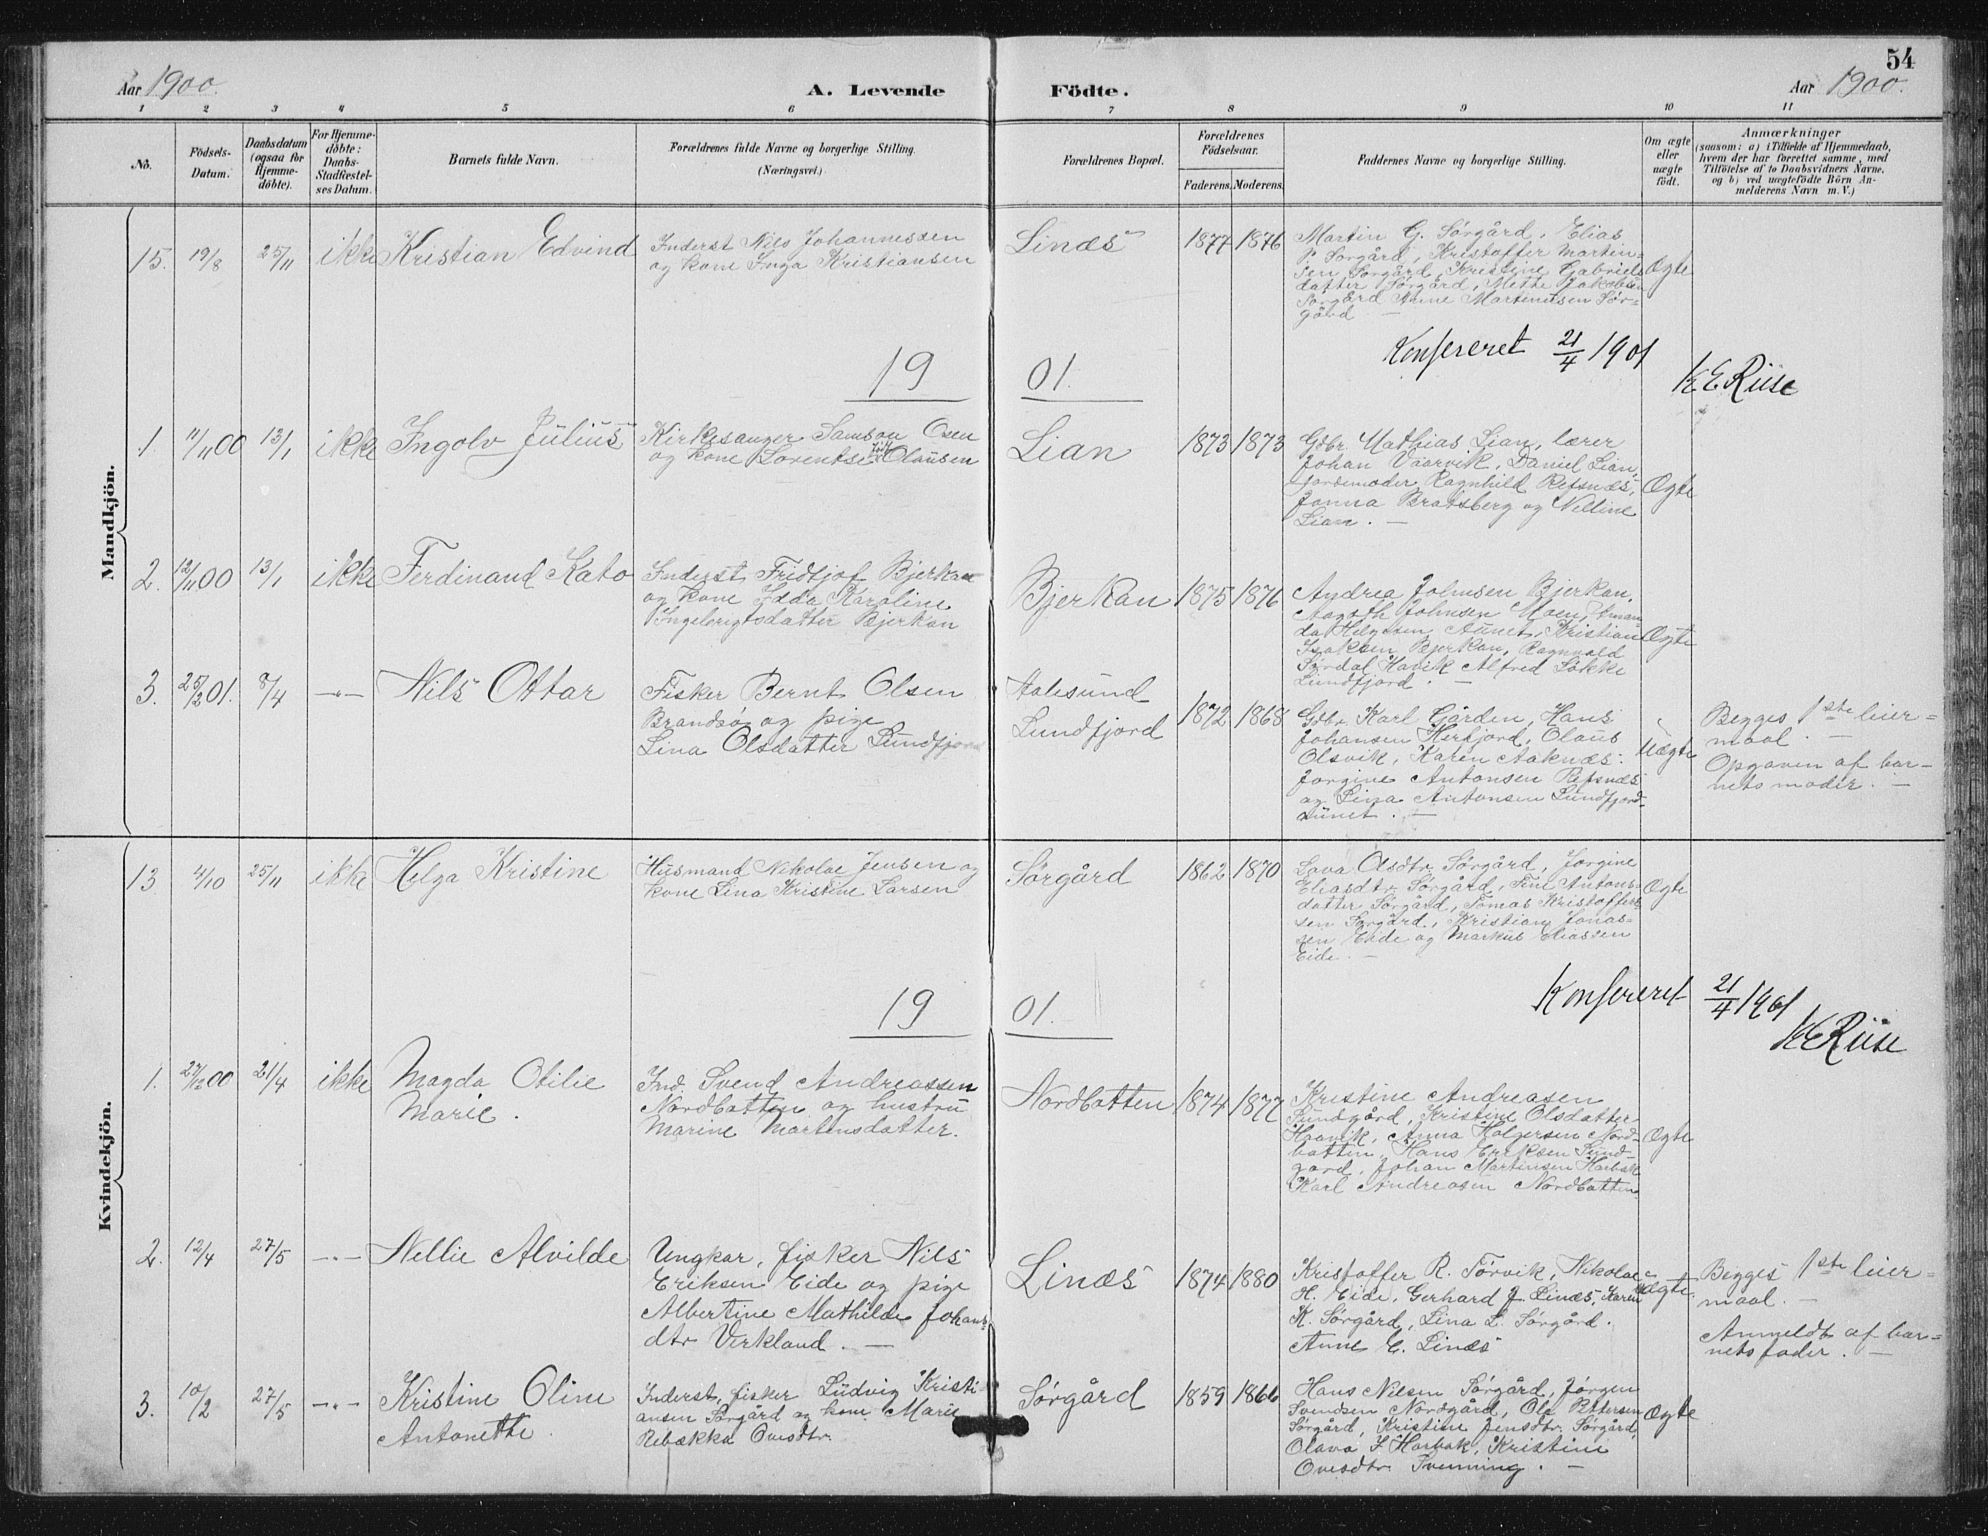 54
Aar 1900.
A. Levende Födte.
Aar 1900.
1 2 3 4 5 6 7 8 9 10 11
No.
Födsels-
Datum.
Daabsdatum
(ogsaa for
Hjemme-
döbte).
For Hjemme-
döbte:
Daabs-
Stadfæstel-
ses Datum.
Barnets fulde Navn.
Forældrenes fulde Navne og borgerlige Stilling.
(Næringsvei.)
Forældrenes Bopæl.
Forældrenes
Födselsaar.
Faderens. Moderens.
Faddernes Navne og borgerlige Stilling.
Om ægte
eller
uægte
födt.
Anmærkninger
(saasom: a) i Tilfælde af Hjemmedaab,
hvem der har forrettet samme, med
Tilföielse af to Daabsvidners Navne,
og b) ved uægtefödte Börn An-
melderens Navn m. V.)
Mandkjön.
15. 19/8 25/11 ikke Kristian Edvind
Inderst Nils Johannessen
og kone Inga Kristiansen
Linæs
1877 1876
Martin G. Sørgård, Elias
P. Sørgård, Kristoffer Martin-
sen Sørgård, Kristine Gabriels
datter Sørgård, Mette Jakobsen
Sørgård Anne Martinusen Sør-
gård
Ægte
Konfereret 21/4 1901
K E Riise
19 01.
1. 11/11 00 13/1 ikke Ingolv Julius
Kirkesanger Samson Osen
og kone Lorentse Olausen
Lian
1873 1873
Gdbr. Mathias Lian, lærer
Johan Vaarvik, Daniel Lian,
jordemoder Ragnhild Refsnæs,
Jonna Bratsberg og Nilline
Lian. —
Ægte
2. 12/11 00 13/1 ikke Ferdinand Kato
Inderst Fridtjof Bjerkan
og kone Idda Karoline
Ingebrigtsdatter Bjerkan
Bjerkan
1875 1876
Andrea Johnsen Bjerkan,
Aagoth Johnsen Moen, Aman
da Helgesen Aunet, Kristian
Isaksen Bjerkan, Ragnvald
Sørdal Havik Alfred Løkke
Lundfjord. —
Ægte
3. 25/2 01. 8/4 —"— Nils Ottar
Fisker Bernt Olsen
Brandsø og pige
Lina Olsdatter Lundfjord
Aalesund
Lundfjord
1872 1868
Gdbr. Karl Gården, Hans
Johansen Herfjord, Olaus
Olsvik, Karen Aaknæs,
Jorgine Antonsen Refsnæs
og Lina Antonsen Lundfjord-
Aunet. —
Uægte
Begges 1ste leier-
maal. —
Opgaven af bar-
nets moder. —
Kvindekjön.
13 4/10 25/11 ikke Helga Kristine
Husmand Nikolai Jensen og
kone Lina Kristine Larsen
Sørgård
1862 1870
Lava Olsdtr. Sørgård, Jorgine
Eliasdtr. Sørgård, Fine Antons-
datter Sørgård, Tomas Kristoffer-
sen Sørgård, Kristian Jonas-
sen Eide og Markus Eliassen
Eide. —
Ægte
Konfereret 21/4 1901
K E Riise
19 01.
1. 27/12 00 21/4 ikke Magda Otilie
Marie.
Ind. Svend Andreassen
Nordbotten og hustru
Marine Martinsdatter.
Nordbotten
1874 1877
Kristine Andreasen
Sundgård, Kristine Olsdatter
Haavik, Anna Holgersen Nord-
botten, Hans Eriksen Sund-
gård, Johan Martinsen Harbak
Karl Andreasen Nordbotten
Ægte
2. 12/4 27/5 —"— Nellie Alvilde
Ungkar, fisker Nils
Eriksen Eide og pige
Albertine Mathilde Johans-
dtr Virkland. —
Linæs
1874 1880
Kristoffer R. Tørvik, Nikolai
H. Eide, Gerhard J Linæs, Karen
K. Sørgård, Lina L. Sørgård.
Anne E. Linæs
Uægte.
Begges 1ste leier-
maal. —
Anmeldt af bar-
nets fader. —
3. 10/2 27/5 —"— Kristine Oline
Antonette.
Inderst, fisker Ludvig Kristi-
ansen Sørgård og kone Marie
Rebækka Ovesdtr.
Sørgård
1859 1866
Hans Nilsen Sørgård, Jørgen
Svendsen Nordgård, Ole Pettersen
Sørgård, Kristine Jensdtr. Sørgård,
Olava J Harbak, Kristine
Ovesdtr. Svenning. —
Ægte